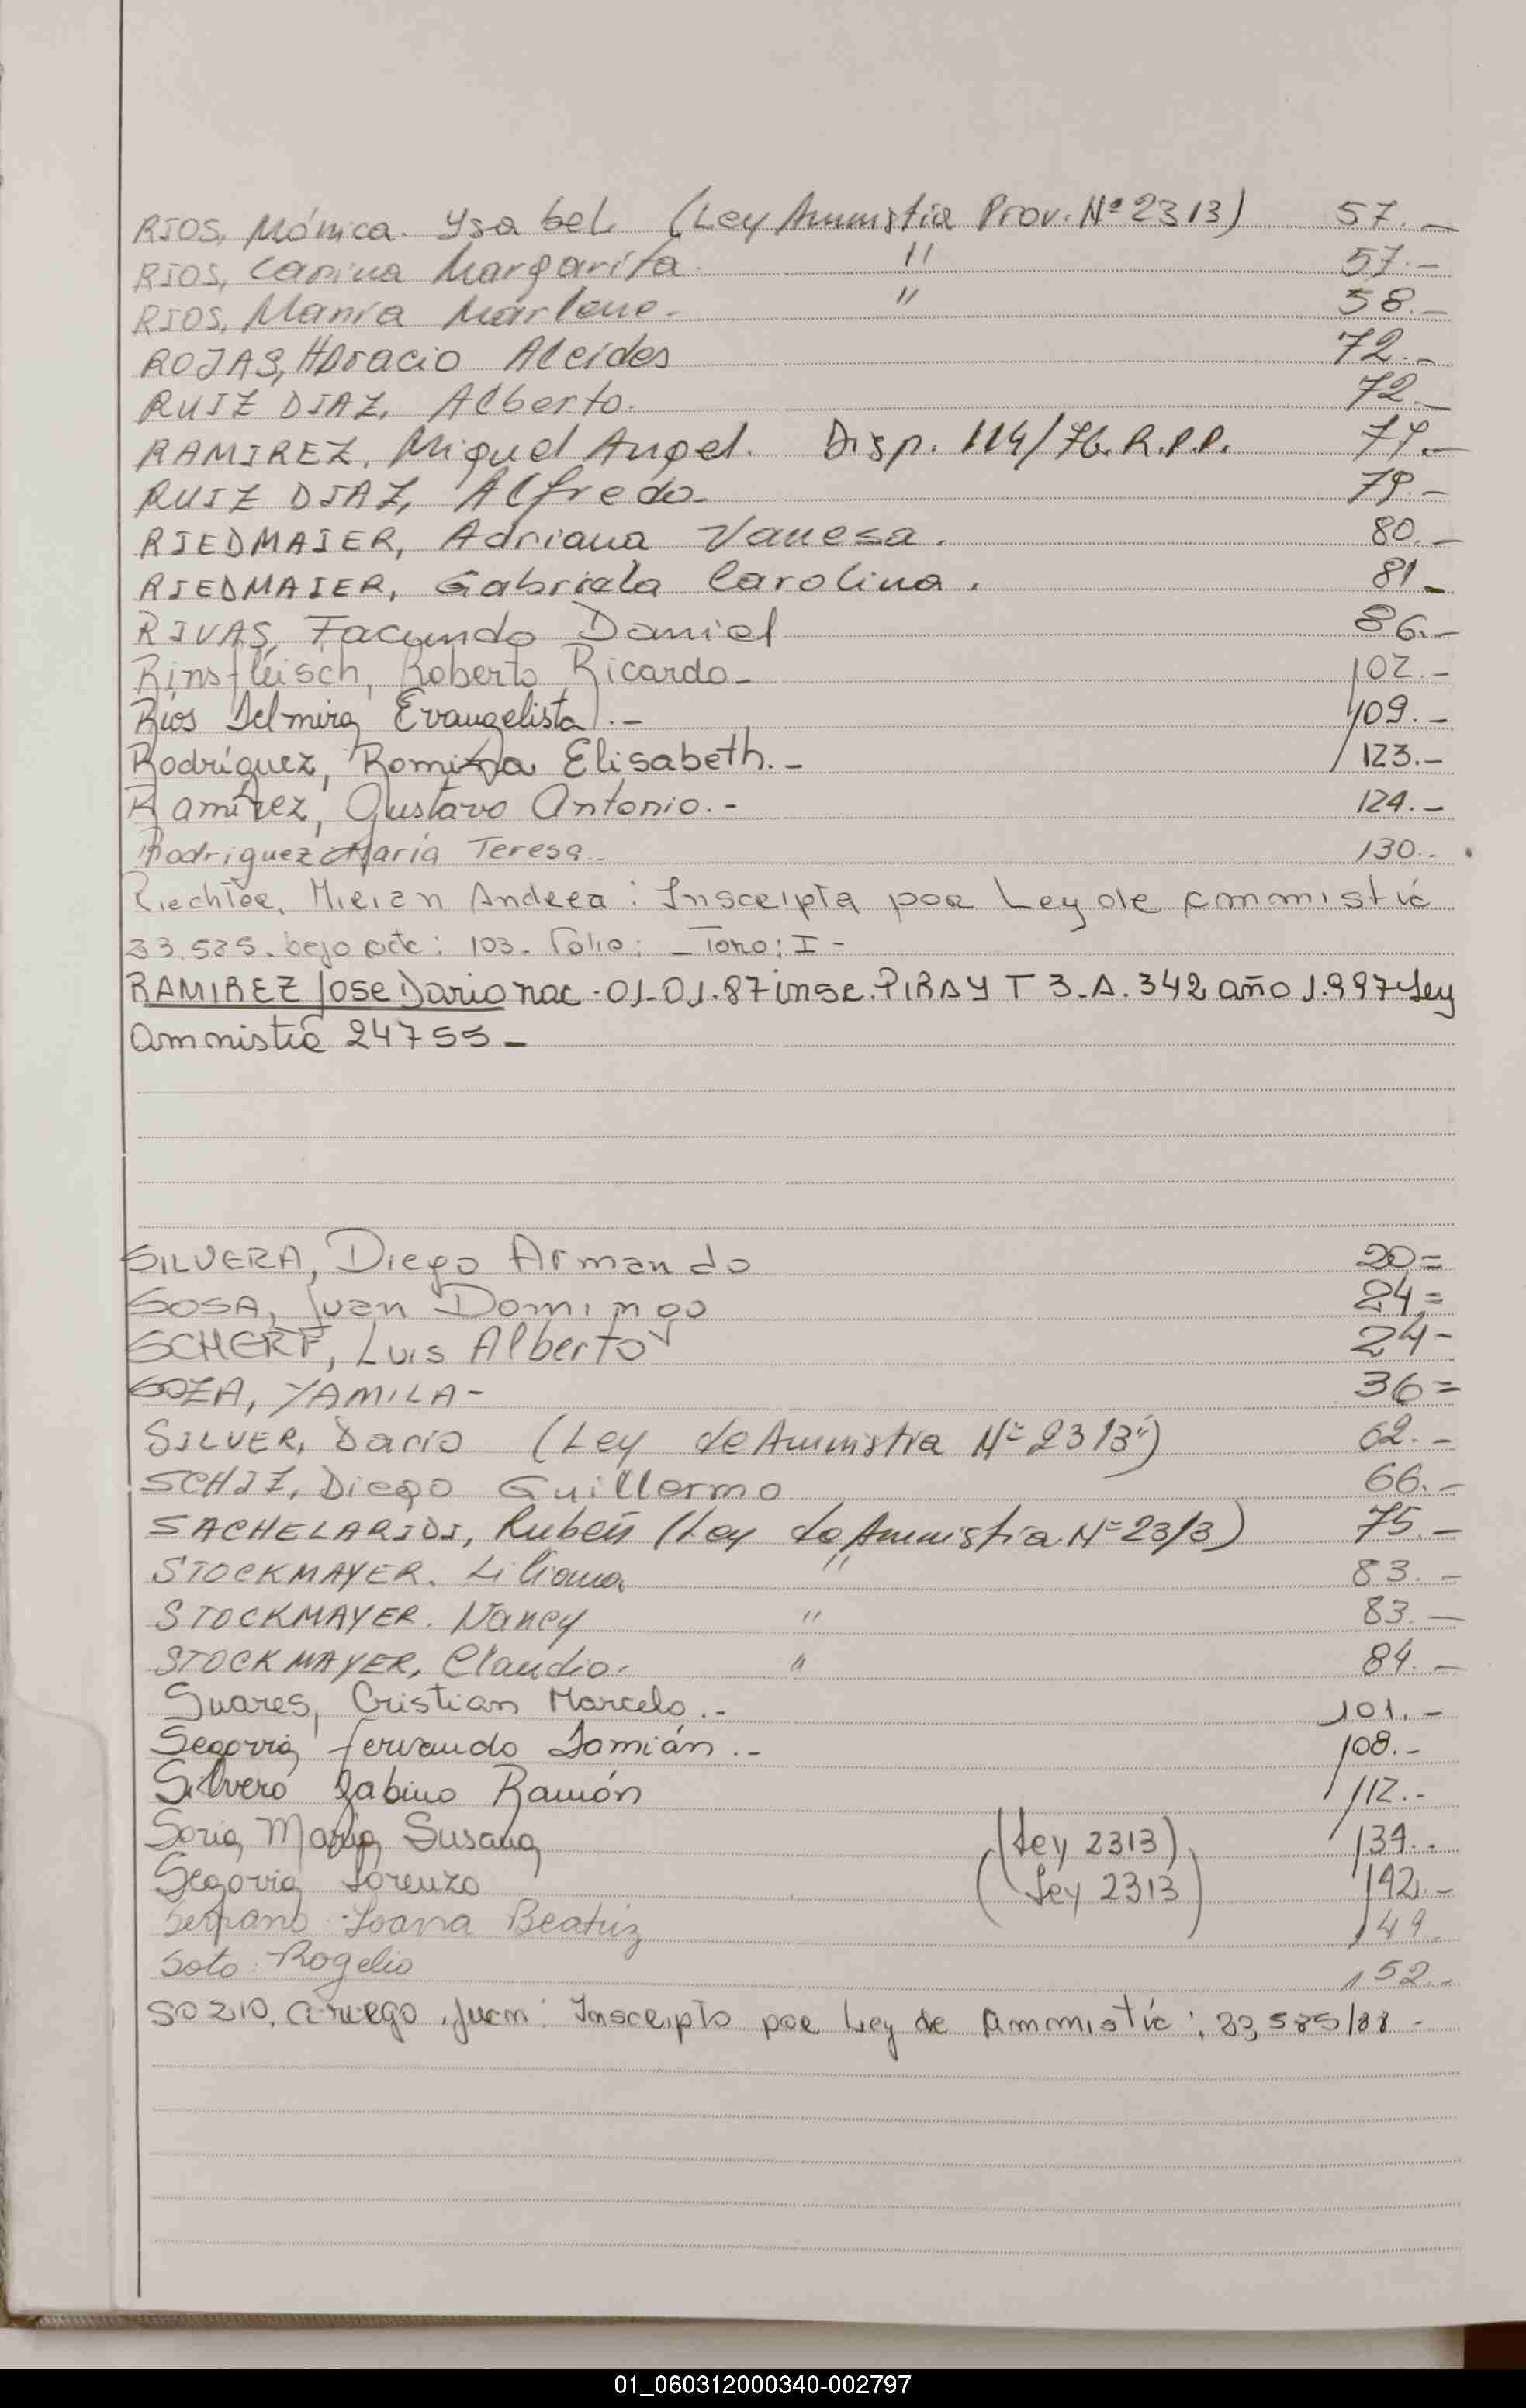 RIOS, Mónica. Ysabel. (Ley Amnistia Prov. Nº 2313) 57.-
RIOS, Carina Margarita. " 57.-
RIOS, Marlene. " 58.-
ROJAS, Horacio Alcides 72.-
RUIZ DIAZ, Alberto. 72.-
RAMIREZ, Miguel Angel. Disp. 114/76. R.P.P. 77.-
RUIZ DIAZ, Alfredo- 79.-
RIEDMAIER, Adriana Vanesa. 80.-
RIEDMAIER, Gabriela Carolina. 81-
RIVAS, Facundo Daniel 86.-
Rinsfleisch, Roberto Ricardo- 102.-
Ríos Delmira Evangelista.- 109.-
Rodríguez, Romina Elisabeth.- 123.-
Ramírez, Gustavo Antonio.- 124.-
Rodriguez María Teresa.. 130.-
Riechtee, Mirian Andrea: Inscripta por Ley de ammistía
23.585. bajo acta: 103. Folio: - Tomo: I -
RAMIREZ Jose Dario nac. 01-01.87 insc. PIRAY T 3-A. 342 año 1.997 Ley
amnistia 24755-
SILVERA, Diego Armando 20=
SOSA, Juan Domingo 24=
SCHERF, Luis Alberto 24-
SOZA, YAMILA- 36=
SILVER, Dario (Ley de Amnistia Nº 2313") 62.-
SCHIZ, Diego Guillermo 66.-
SACHELARIDI, Rubén (Ley de Amnistia Nº 2313) 75.-
STOCKMAYER. Liliana " 83.-
STOCKMAYER. Nancy " 83.-
STOCKMAYER, Claudio. " 84.-
Suares, Cristian Marcelo.- 101.-
Segovia fernando Damián.- 108.-
Silvero Gabino Ramón 112.-
Soria Maria Susana (Ley 2313) 134.-
Segovia Lorenzo (Ley 2313) 142.-
Serrano Joana Beatriz 149.
Soto Rogelio 152.-
SOZIO, Juan: Inscripto por Ley de ammistía: 23,585/88 -
01_060312000340-002797